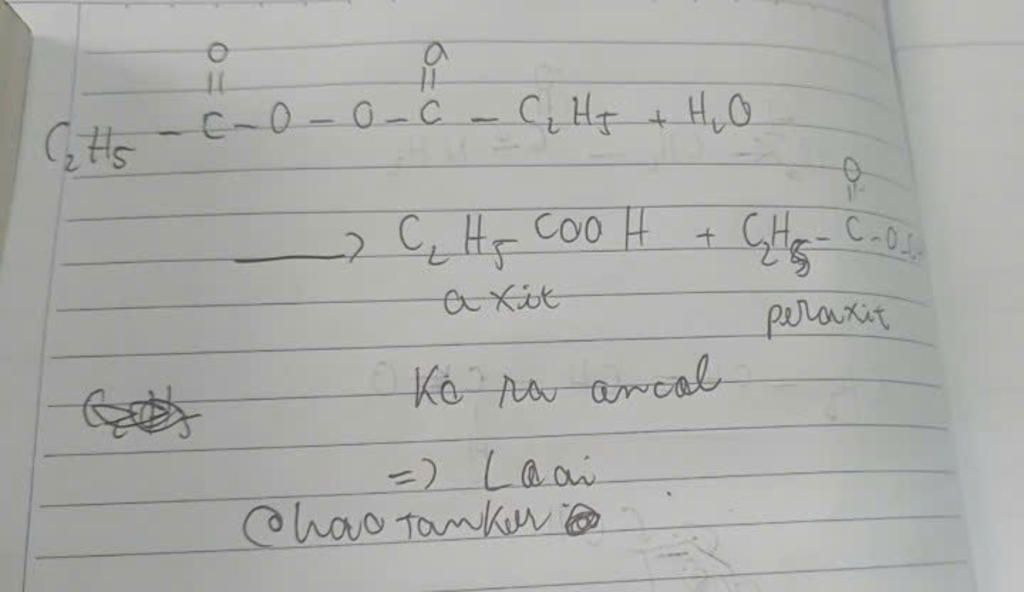 O O
|| ||
C₂H₅ - C - O - O - C - C₂H₅ + H₂O
O
||
→ C₂H₅COOH + C₂H₅ - C - O
axit peraxit
Kč ra ancol
=>
@haotanker